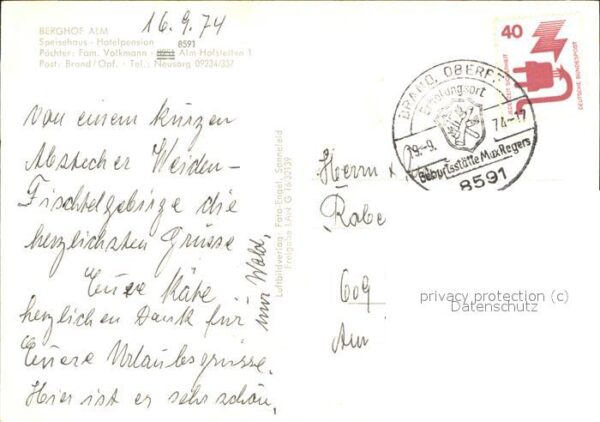 16.9.74
BERGHOF ALM
Speisehaus - Hotelpension 8591
Pächter: Fam. Volkmann · Alm Hofstetten 1
Post: Brand/Opf. · Tel.: Neusorg 09234/337
40
JEDERZEIT SICHERHEIT
DEUTSCHE BUNDESPOST
BRAND, OBERPF
Erholungsort
19.-9. 74-17
Geburtsstätte Max Regers
8591
Von einem kurzen
Abstecher Weiden-
Fichtelgebirge die
herzlichsten Grüsse
Euere Käte
herzlichen Dank für
Euere Urlaubsgrüsse.
Hier ist es sehr schön,
nur Wald.
Luftbildverlag: Foto-Engel, Sonnefeld
Freigabe LAN G
Herrn
Rabe
609
privacy protection (c)
Datenschutz